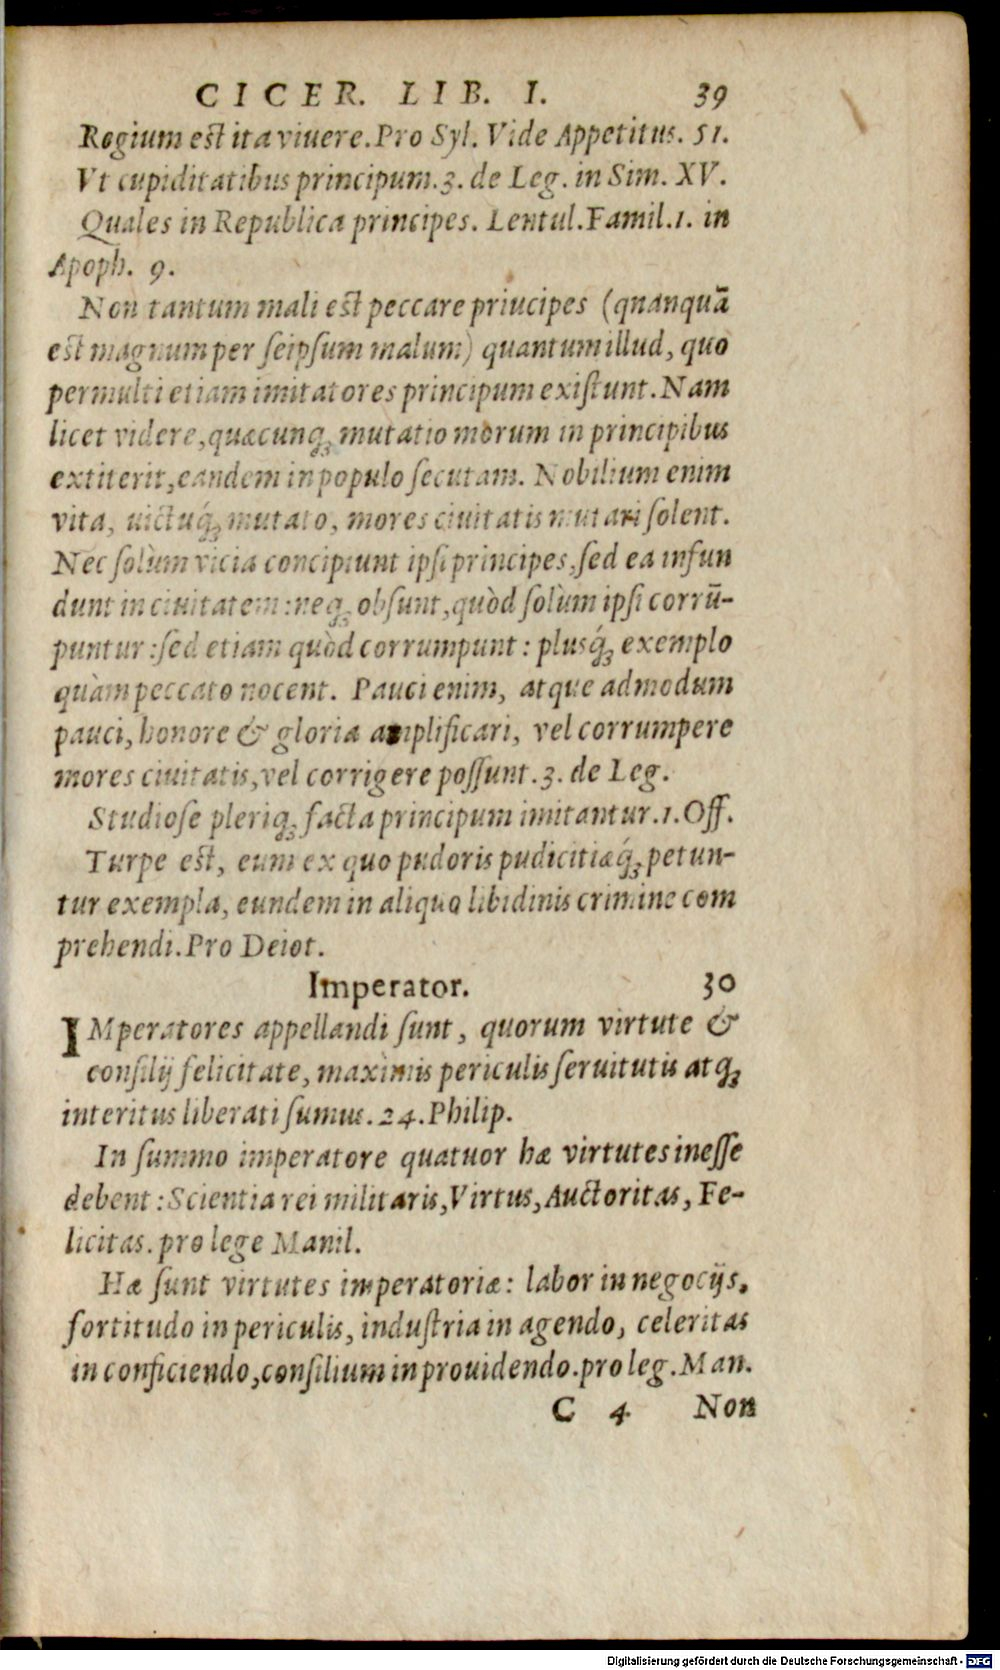 CICER. LIB. I. 39
Regium est ita viuere. Pro Syl. Vide Appetitus. 51.
Vt cupiditatibus principum. 3. de Leg. in Sim. XV.
Quales in Republica principes. Lentul. Famil. 1. in
Apoph. 9.
Non tantum mali est peccare priucipes (quanquã
est magnum per seipsum malum) quantum illud, quo
permulti etiam imitatores principum existunt. Nam
licet videre, quæcunq; mutatio morum in principibus
extiterit, eandem in populo secutam. Nobilium enim
vita, uictuq́; mutato, mores ciuitatis mutari solent.
Nec solùm vicia concipiunt ipsi principes, sed ea infun
dunt in ciuitatem: neq; obsunt, quòd solùm ipsi corrū-
puntur: sed etiam quòd corrumpunt: plusq́; exemplo
quàm peccato nocent. Pauci enim, atque admodum
pauci, honore & gloria amplificari, vel corrumpere
mores ciuitatis, vel corrigere possunt. 3. de Leg.
Studiose pleriq; facta principum imitantur. 1. Off.
Turpe est, eum ex quo pudoris pudicitiæq́; petun-
tur exempla, eundem in aliquo libidinis crimine com
prehendi. Pro Deiot.
Imperator. 30
IMperatores appellandi sunt, quorum virtute &
consilij felicitate, maximis periculis seruitutis atq;
interitus liberati sumus. 24. Philip.
In summo imperatore quatuor hæ virtutes inesse
debent: Scientia rei militaris, Virtus, Auctoritas, Fe-
licitas. pro lege Manil.
Hæ sunt virtutes imperatoriæ: labor in negocijs,
fortitudo in periculis, industria in agendo, celeritas
in conficiendo, consilium in prouidendo. pro leg. Man.
C 4 Non
Digitalisierung gefördert durch die Deutsche Forschungsgemeinschaft - DFG